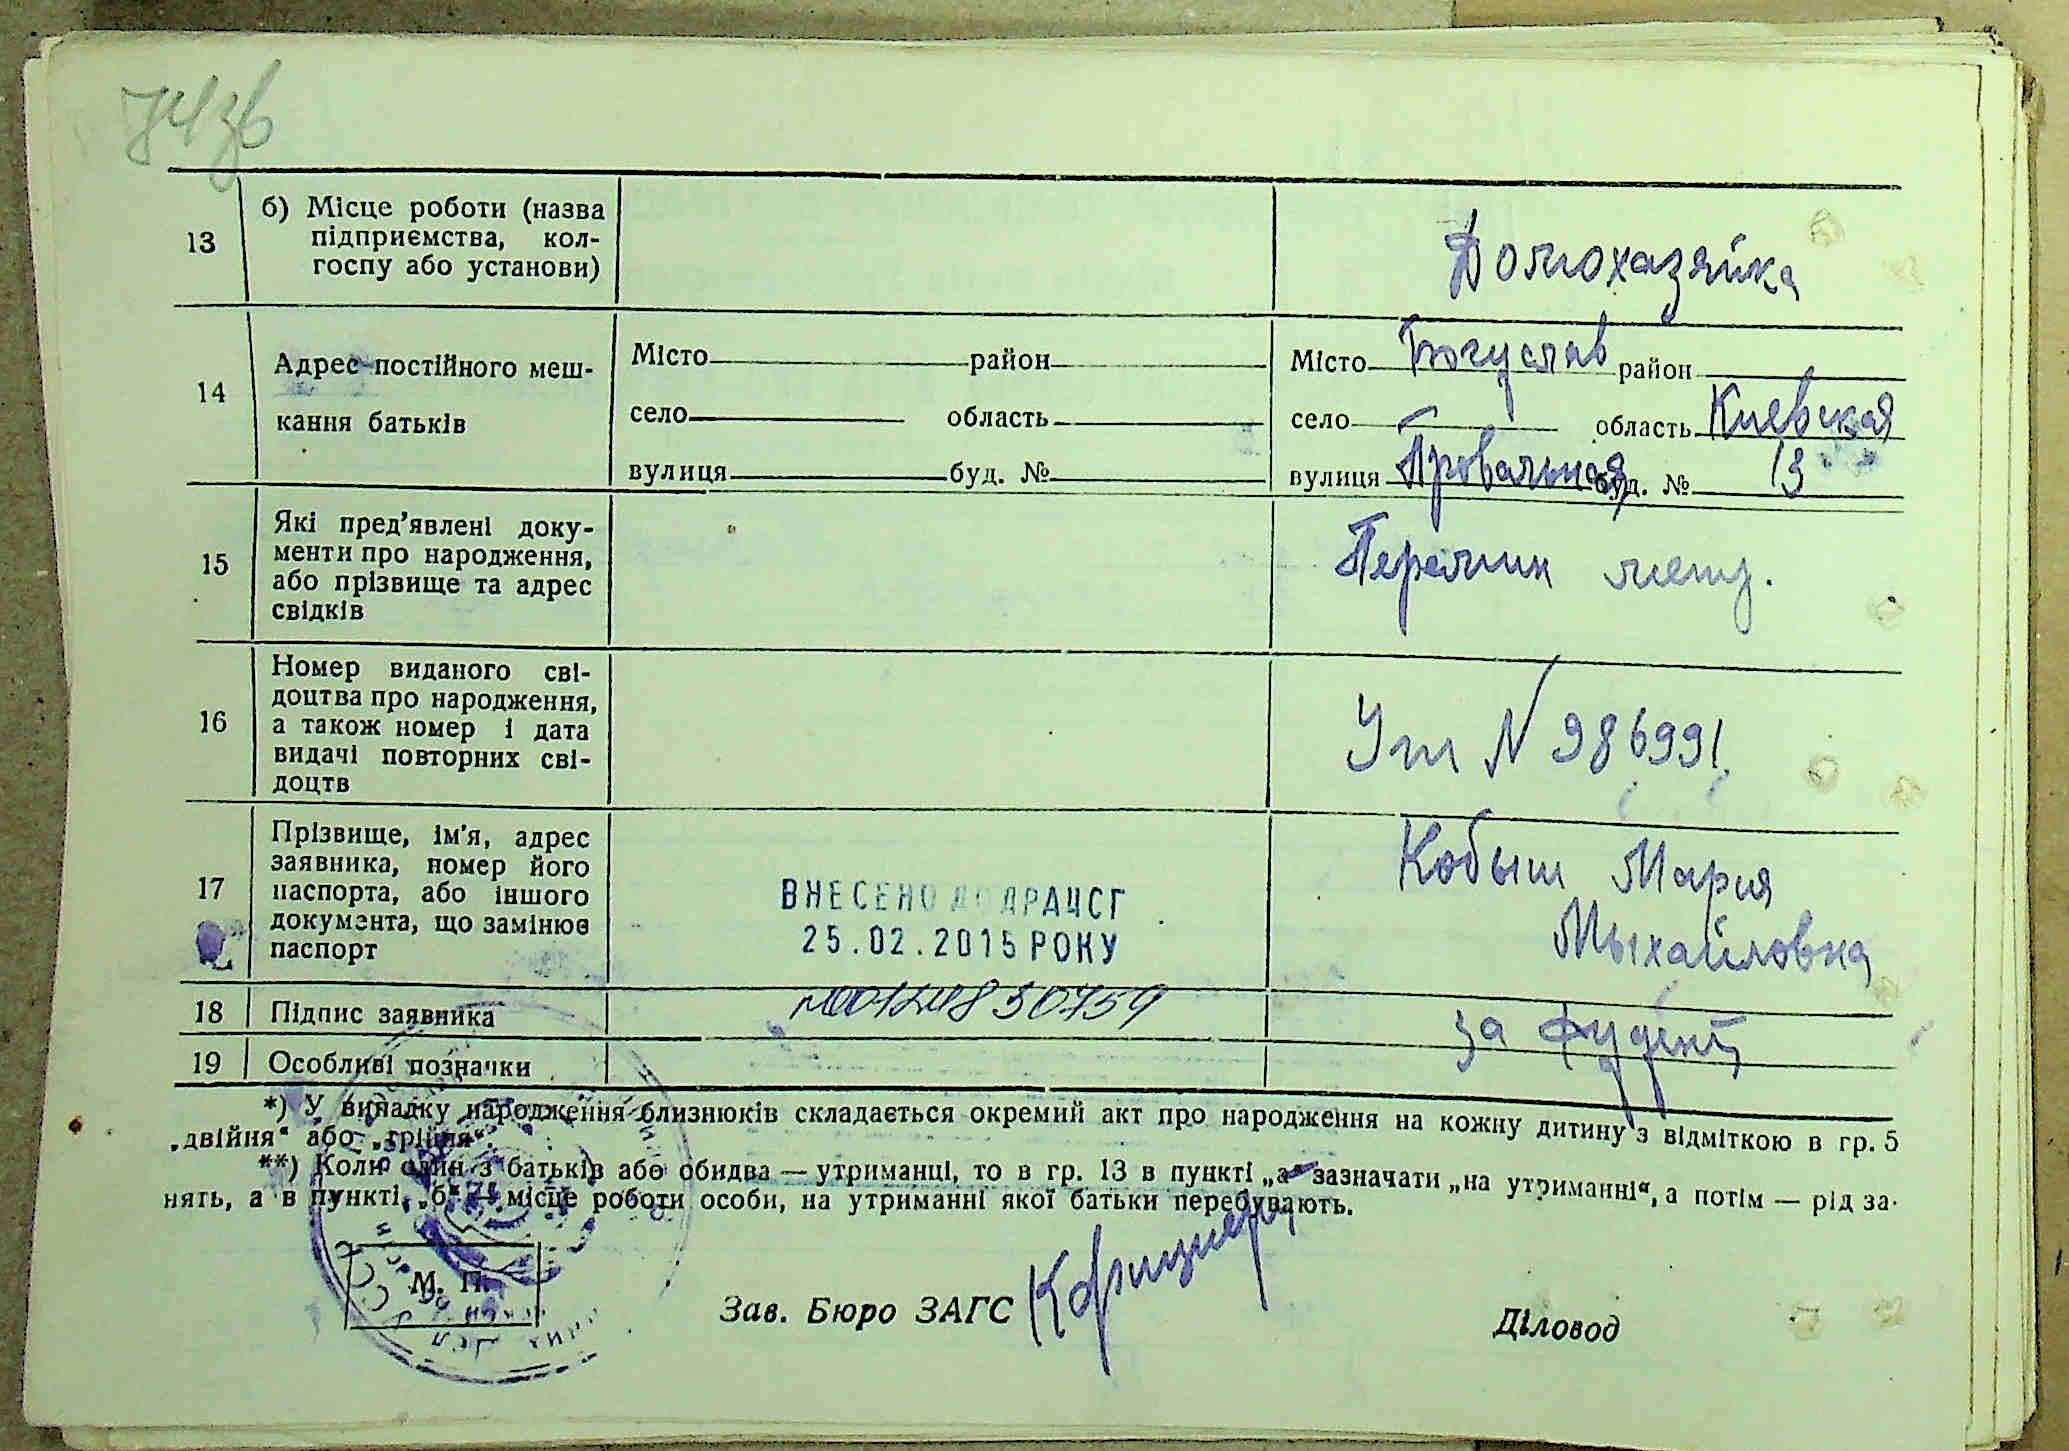 74зв
13
б) Місце роботи (назва
підприємства, кол-
госпу або установи)
Домохазяйка
14
Адрес постійного меш-
кання батьків
Місто район
село область
вулиця буд. №
Місто Богуслав район
село область Киевская
вулиця Провальная буд. № 13
15
Які пред'явлені доку-
менти про народження,
або прізвище та адрес
свідків
16
Номер виданого сві-
доцтва про народження,
а також номер і дата
видачі повторних сві-
доцтв
N 986991
17
Прізвище, ім'я, адрес
заявника, номер його
паспорта, або іншого
документа, що замінює
паспорт
ВНЕСЕНО ДО ДРАЦСГ
25.02.2015 РОКУ
Кобыш Мария
Мыхайловна
18
Підпис заявника
19
Особливі позначки
за
*) У випадку народження близнюків складається окремий акт про народження на кожну дитину з відміткою в гр. 5
„двійня“ або „трійня“.
**) Коли один з батьків або обидва — утриманці, то в гр. 13 в пункті „а“ зазначати „на утриманні“, а потім — рід за-
нять, а в пункті „б“ — місце роботи особи, на утриманні якої батьки перебувають.
М. П.
Зав. Бюро ЗАГС
Діловод